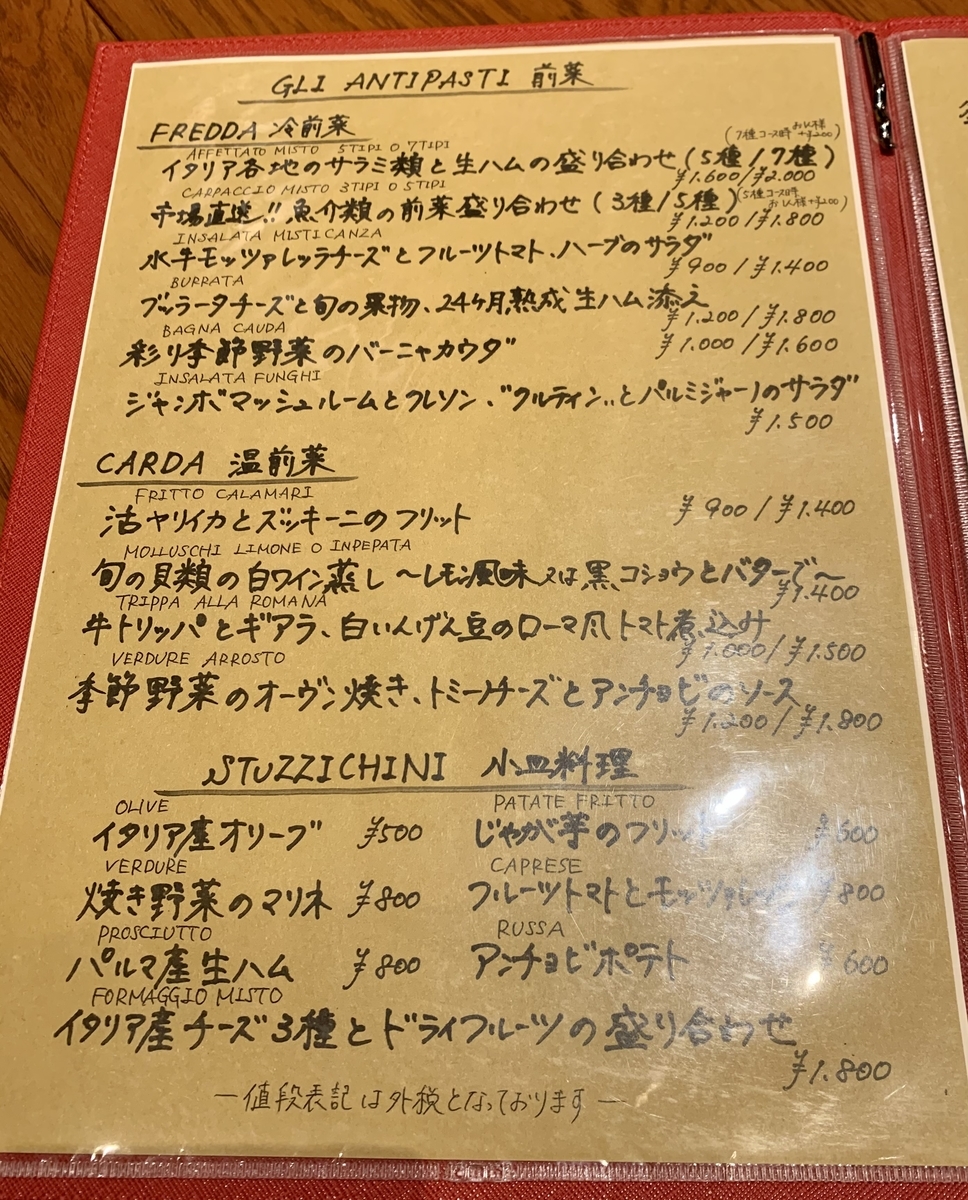 GLI ANTIPASTI 前菜
FREDDA 冷前菜
(7種コース時 お1人様+¥200)
AFFETTATO MISTO 5TIPI O 7TIPI
イタリア各地のサラミ類と生ハムの盛り合わせ(5種/7種)
¥1.600/¥2.000
CARPACCIO MISTO 3TIPI O 5TIPI
市場直送!!魚介類の前菜盛り合わせ(3種/5種)(5種コース時 お1人様+¥200)
¥1.200/¥1.800
INSALATA MISTICANZA
水牛モッツァレッラチーズとフルーツトマト、ハーブのサラダ
¥900/¥1.400
BURRATA
ブッラータチーズと旬の果物、24ヶ月熟成生ハム添え
¥1.200/¥1.800
BAGNA CAUDA
彩り季節野菜のバーニャカウダ ¥1.000/¥1.600
INSALATA FUNGHI
ジャンボマッシュルームとクレソン、"クルティン"とパルミジャーノのサラダ
¥1.500
CARDA 温前菜
FRITTO CALAMARI
活ヤリイカとズッキーニのフリット ¥900/¥1.400
MOLLUSCHI LIMONE O INPEPATA
旬の貝類の白ワイン蒸し 〜レモン風味又は黒コショウとバターで〜
¥1.400
TRIPPA ALLA ROMANA
牛トリッパとギアラ、白いんげん豆のローマ風トマト煮込み
¥1.000/¥1.500
VERDURE ARROSTO
季節野菜のオーヴン焼き、トミーノチーズとアンチョビのソース
¥1.200/¥1.800
STUZZICHINI 小皿料理
OLIVE
イタリア産オリーブ ¥500
PATATE FRITTO
じゃが芋のフリット ¥600
VERDURE
焼き野菜のマリネ ¥800
CAPRESE
フルーツトマトとモッツァレッラ ¥800
PROSCIUTTO
パルマ産生ハム ¥800
RUSSA
アンチョビポテト ¥600
FORMAGGIO MISTO
イタリア産チーズ3種とドライフルーツの盛り合わせ
¥1.800
—値段表記は外税となっております—